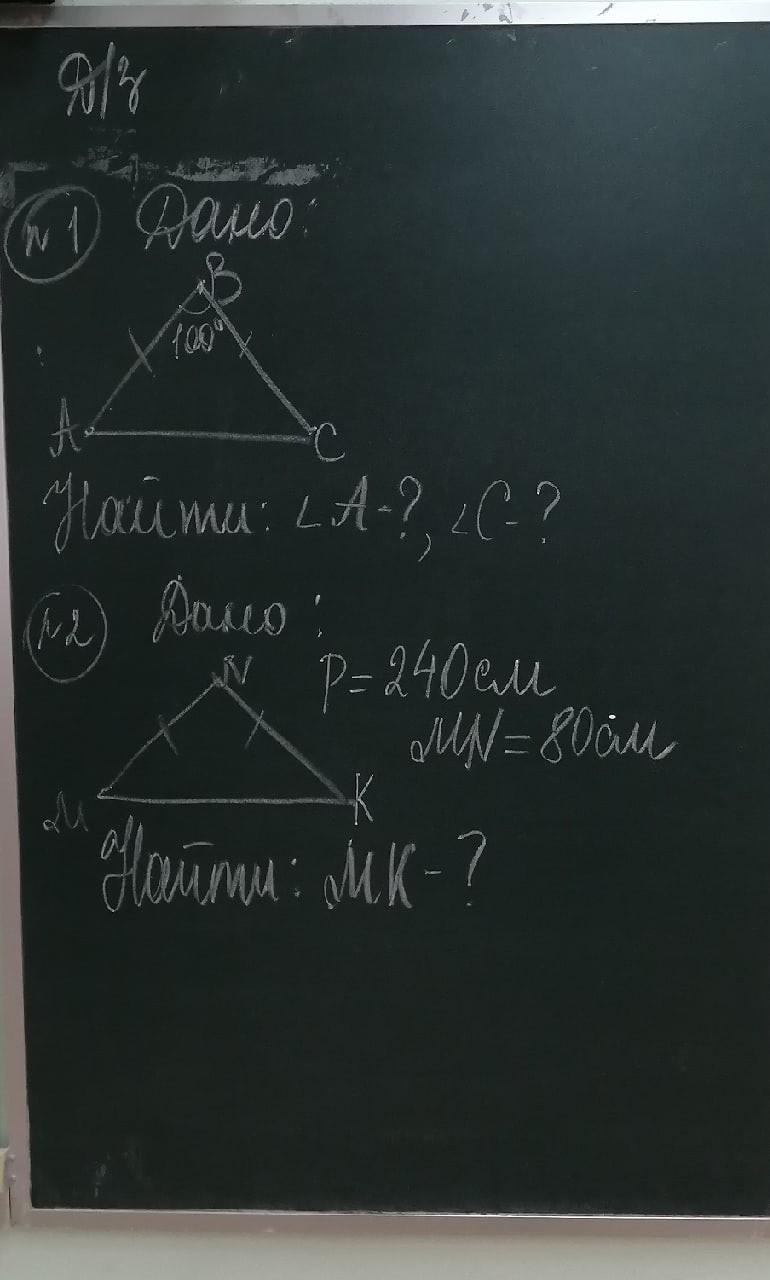 Д/з
№1 Дано:
B
100°
A
C
Найти: ∠A-?, ∠C-?
№2 Дано:
N
P=240см
MN=80см
M
K
Найти: MK-?